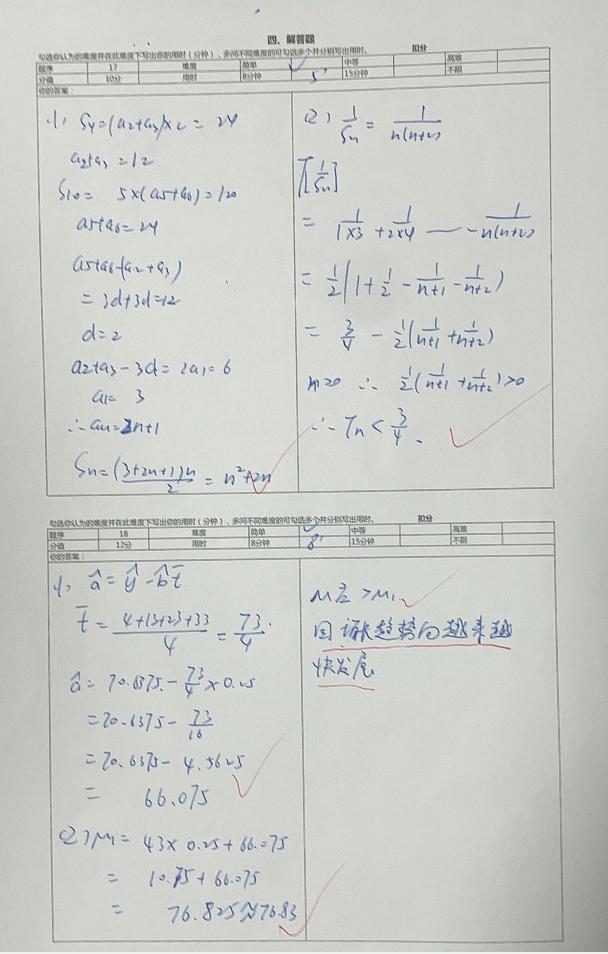 四、解答题
勾选你认为的难度并在此难度下写出你的用时（分钟），多问不同难度的可勾选多个并分别写出用时。 扣分
题序 17 难度 简单 √ 中等 高难
分值 10分 用时 8分钟 5' 15分钟 不限
你的答案：
(1) S₄=(a₂+a₃)×2=24
a₂+a₃=12
S₁₀= 5×(a₅+a₆)=120
a₅+a₆=24
a₅+a₆-(a₂+a₃)
=3d+3d=12
d=2
a₂+a₃-3d=2a₁=6
a₁= 3
∴an=2n+1
Sn=(3+2n+1)n/2=n²+2n
(2) 1/Sn = 1/n(n+2)
T[1/Sn]
= 1/1×3 + 1/2×4 — - 1/n(n+2)
= 1/2(1+1/2-1/n+1-1/n+2)
= 3/4 - 1/2(1/n+1+1/n+2)
n>0 ∴ 1/2(1/n+1+1/n+2)>0
∴ Tn<3/4.
勾选你认为的难度并在此难度下写出你的用时（分钟），多问不同难度的可勾选多个并分别写出用时。 扣分
题序 18 难度 简单 √ 中等 高难
分值 12分 用时 8分钟 8' 15分钟 不限
你的答案：
(1) â=ŷ-b̂t̄
t̄=4+13+23+33/4=73/4.
â=70.6375-73/4×0.25
=70.6375-73/16
=70.6375-4.5625
= 66.075
(2) M₁= 43×0.25+66.075
= 10.75+66.075
= 76.825≈76.83
>M₁
趋势向越来越
快发展